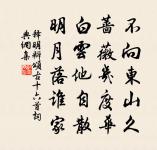 不向東山久
薔薇幾度華
白雲他自散
明月落誰家
釋明辯頌古十六首詞
典網集